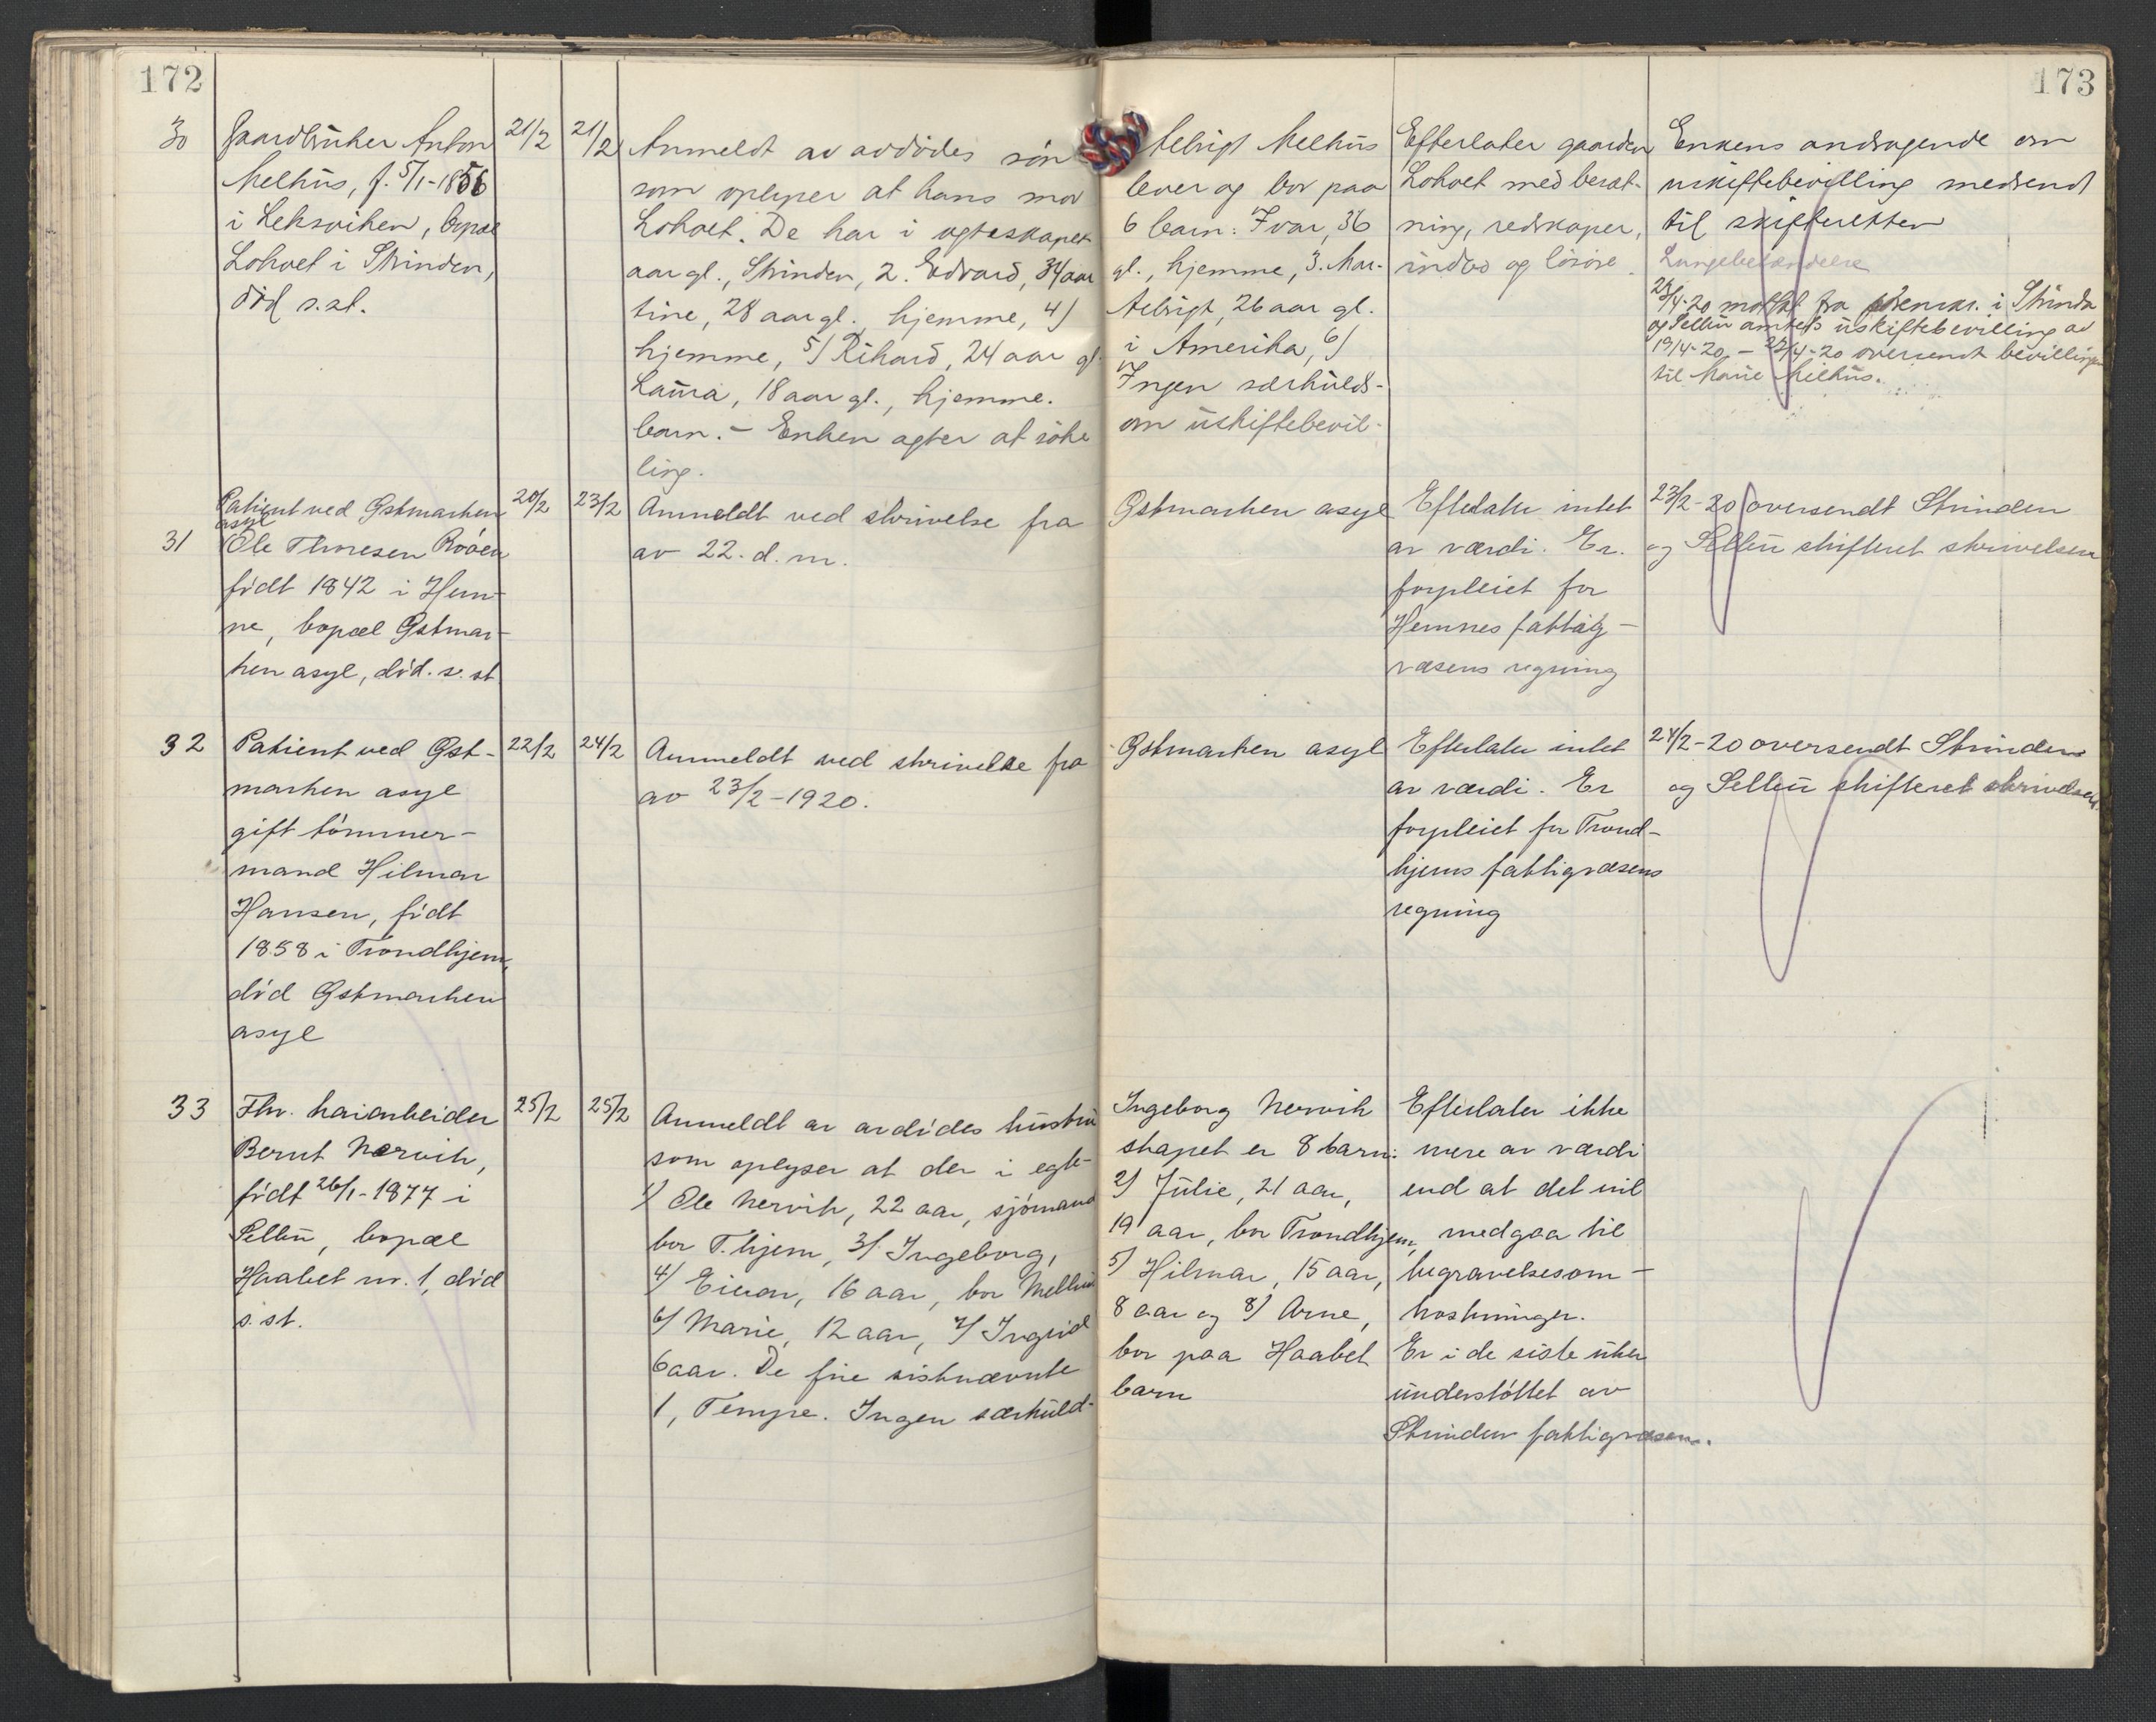 172
173
30
Gaardbruker Anton
Melhus, f. 5/1-1856
i Leksviken, bopæl
Lohoet i Strinden,
død s.st.
21/2
21/2
Anmeldt av avdødes søn
Melhus
som oplyser at hans mor
lever og bor paa
Lohoet. De har i egteskapet
6 barn: Ivar, 36
aar gl., Strinden, 2. Edvard, 34 aar
gl., hjemme, 3. Mar-
tine, 28 aar gl. hjemme, 4)
26 aar gl.
hjemme, 5) Rikard, 24 aar gl.
i Amerika, 6)
Laura, 18 aar gl., hjemme.
Ingen særkulds-
barn. - Enken agter at søke
om uskiftebevil-
ling.
Efterlater gaarden
Lohoet med besæt-
ning, redskaper,
indbo og løsøre.
Enkens andragende om
uskiftebevilling medsend
til skifteretten
Lungebetændelse
/4-20 mottat fra i Strinda
og Selbu amtets uskiftebevilling av
19/4-20 - /4-20 oversendt bevillingen
til Marie Melhus.
31
Patient ved Østmarken
asyl
Ole Thoresen Røøen
født 1842 i Hem-
ne, bopæl Østmar-
ken asyl, død. s. st.
20/2
23/2
Anmeldt ved skrivelse fra
Østmarken asyl
av 22. d. m.
Efterlater intet
av værdi. Er
forpleiet for
Hemnes fattig-
væsens regning
23/2-20 oversendt Strinden
og Selbu skifteret skrivelsen
32
Patient ved Øst-
marken asyl
gift tømmer-
mand Hilmar
Hansen, født
1858 i Trondhjem,
død Østmarken
asyl
22/2
24/2
Anmeldt ved skrivelse fra
Østmarken asyl
av 23/2-1920.
Efterlater intet
av værdi. Er
forpleiet for Trond-
hjems fattigvæsens
regning
24/2-20 oversendt Strinden
og Selbu skifteret skrivelsen
33
Fhv. kaiarbeider
Bernt Nervik,
født 26/1-1877 i
Selbu, bopæl
Haabet nr. 1, død
s. st.
25/2
25/2
Anmeldt av avdødes hustru
Ingeborg Nervik
som oplyser at der i egte-
skapet er 8 barn:
1) Ole Nervik, 22 aar, sjømand
2) Julie, 21 aar,
bor T.hjem, 3) Ingeborg,
19 aar, bor Trondhjem,
4) Einar, 16 aar, bor
5) Hilmar, 15 aar,
6) Marie, 12 aar, 7) Ingrid
8 aar og 8) Arne,
6 aar. De fire sistnævnte
bor paa Haabet
1, Tempe. Ingen særkuld-
barn
Efterlater ikke
mere av værdi
end at det vil
medgaa til
begravelsesom-
kostninger.
Er i de siste uker
understøttet av
Strinden fattigvæsen.